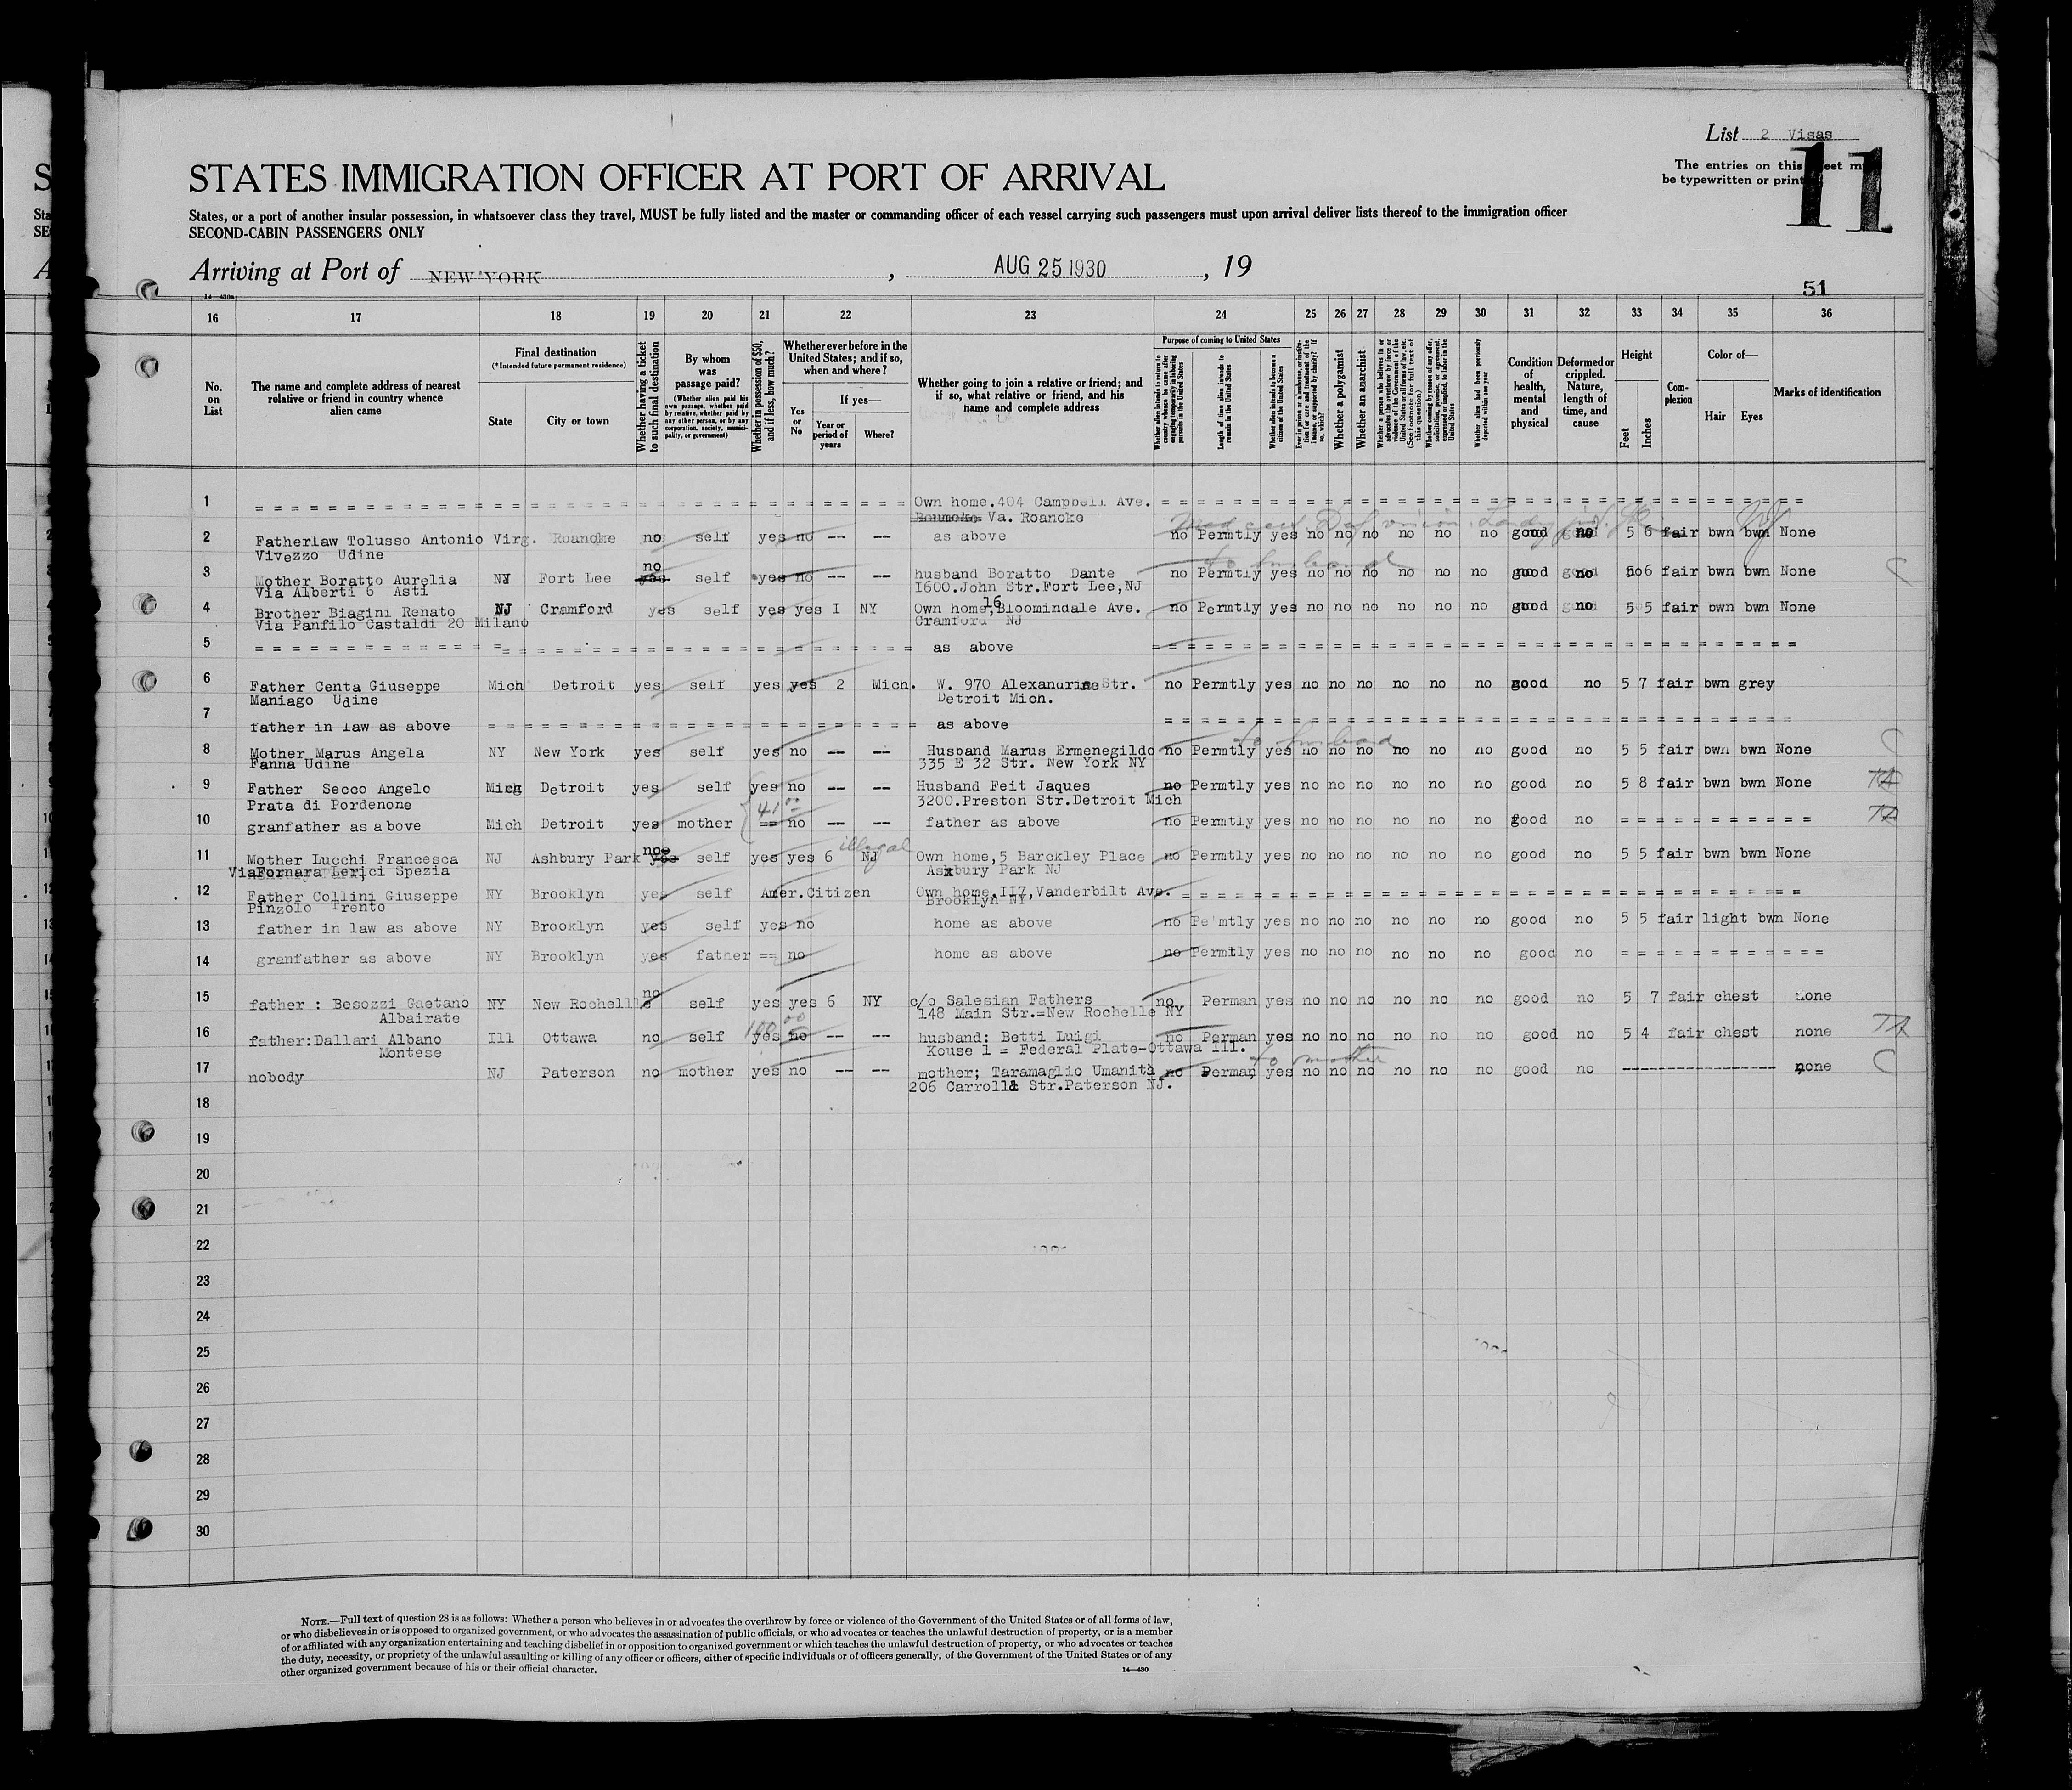 List 2 Visas
The entries on this
be typewritten or print
11
STATES IMMIGRATION OFFICER AT PORT OF ARRIVAL
States, or a port of another insular possession, in whatsoever class they travel, MUST be fully listed and the master or commanding officer of each vessel carrying such passengers must upon arrival deliver lists thereof to the immigration officer
SECOND-CABIN PASSENGERS ONLY
Arriving at Port of NEW YORK, AUG 25 1930, 19
51
16 17 18 19 20 21 22 23 24 25 26 27 28 29 30 31 32 33 34 35 36
No. on List
The name and complete address of nearest relative or friend in country whence alien came
Final destination
(*Intended future permanent residence)
State
City or town
Whether having a ticket to such final destination
By whom was passage paid?
(Whether alien paid his own passage, whether paid by relative, whether paid by any other person, or by any corporation, society, municipality, or government)
Whether in possession of $50, and if less, how much?
Whether ever before in the United States; and if so, when and where?
If yes—
Yes or No
Year or period of years
Where?
Whether going to join a relative or friend; and if so, what relative or friend, and his name and complete address
Purpose of coming to United States
Whether alien intends to return to country whence he came after engaging temporarily in laboring pursuits in the United States
Length of time alien intends to remain in the United States
Whether alien intends to become a citizen of the United States
Whether a polygamist
Whether an anarchist
Condition of health, mental and physical
Deformed or crippled. Nature, length of time, and cause
Height
Feet
Inches
Complexion
Color of—
Hair
Eyes
Marks of identification
1 = = = = Own home.404 Campbell Ave. = = = =
Va. Roanoke
2 Fatherlaw Tolusso Antonio Virg. Roanoke no self yes no -- -- as above no Permtly yes no no no no no no good no 5 6 fair bwn bwn None
Vivezzo Udine
to husband
no
3 Mother Boratto Aurelia NJ Fort Lee yes self yes no -- -- husband Boratto Dante no Permtly yes no no no no no no good no 5 6 fair bwn bwn None C
Via Alberti 6 Asti 1600.John Str.Fort Lee,NJ
4 Brother Biagini Renato NJ Cramford yes self yes yes I NY Own home,16 Bloomindale Ave. no Permtly yes no no no no no no good no 5 5 fair bwn bwn None
Via Panfilo Castaldi 20 Milano Cramford NJ
5 = = = = as above = = = =
6 Father Centa Giuseppe Mich Detroit yes self yes yes 2 Mich. W. 970 Alexandrine Str. no Permtly yes no no no no no no good no 5 7 fair bwn grey
Maniago Udine Detroit Mich.
7 father in law as above = = = = as above = = = =
to husband
8 Mother Marus Angela NY New York yes self yes no -- -- Husband Marus Ermenegildo no Permtly yes no no no no no no good no 5 5 fair bwn bwn None C
Fanna Udine 335 E 32 Str. New York NY
9 Father Secco Angelo Mich Detroit yes self yes no -- -- Husband Feit Jaques no Permtly yes no no no no no no good no 5 8 fair bwn bwn None
Prata di Pordenone 41.00 3200.Preston Str.Detroit Mich
10 granfather as above Mich Detroit yes mother == no -- -- father as above no Permtly yes no no no no no no good no = = = =
illegal
11 Mother Lucchi Francesca NJ Ashbury Park yes self yes yes 6 NJ Own home,5 Barckley Place no Permtly yes no no no no no no good no 5 5 fair bwn bwn None
ViaFornara Lerici Spezia Asxbury Park NJ
12 Father Collini Giuseppe NY Brooklyn yes self Amer.Citizen Own home,II7,Vanderbilt Ave. = = = =
Pinzolo Trento Brooklyn NY
13 father in law as above NY Brooklyn yes self yes no home as above no Pe'mtly yes no no no no no no good no 5 5 fair light bwn None
14 granfather as above NY Brooklyn yes father == no home as above no Permtly yes no no no no no no good no = = = =
no
15 father : Besozzi Gaetano NY New Rochelle self yes yes 6 NY c/o Salesian Fathers no Perman yes no no no no no no good no 5 7 fair chest none
Albairate 148 Main Str.=New Rochelle NY
100.00
16 father:Dallari Albano Ill Ottawa no self yes no -- -- husband: Betti Luigi no Perman yes no no no no no no good no 5 4 fair chest none
Montese Kouse 1 = Federal Plate-Ottawa Ill.
to mother
17 nobody NJ Paterson no mother yes no -- -- mother; Taramaglio Umanità no Perman, yes no no no no no no good no ---------------- none C
206 Carroll& Str.Paterson NJ.
18
19
20
21
22
23
24
25
26
27
28
29
30
NOTE.—Full text of question 28 is as follows: Whether a person who believes in or advocates the overthrow by force or violence of the Government of the United States or of all forms of law,
or who disbelieves in or is opposed to organized government, or who advocates the assassination of public officials, or who advocates or teaches the unlawful destruction of property, or is a member
of or affiliated with any organization entertaining and teaching disbelief in or opposition to organized government or which teaches the unlawful destruction of property, or who advocates or teaches
the duty, necessity, or propriety of the unlawful assaulting or killing of any officer or officers, either of specific individuals or of officers generally, of the Government of the United States or of any
other organized government because of his or their official character.
14—430